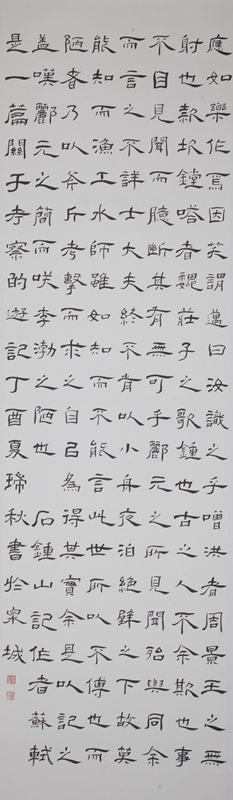 應如樂作焉因笑謂邁曰汝識之乎噌洪者周景王之無
射也款坎鏜嗒者魏莊子之歌鍾也古之人不余欺也事
不目見聞而臆斷其有無可乎酈元之所見聞殆與同余
而言之不詳士大夫終不肯以小舟夜泊絕壁之下故莫
能知而漁工水師雖如知而不能言此世所以不傳也而
陋者乃以斧斤考擊而求之自己為得其實余是以記之
蓋嘆酈元之簡而咲李渤之陋也 石鍾山記作者蘇軾
是一篇關于考察的遊記丁酉夏瑞秋書於泉城